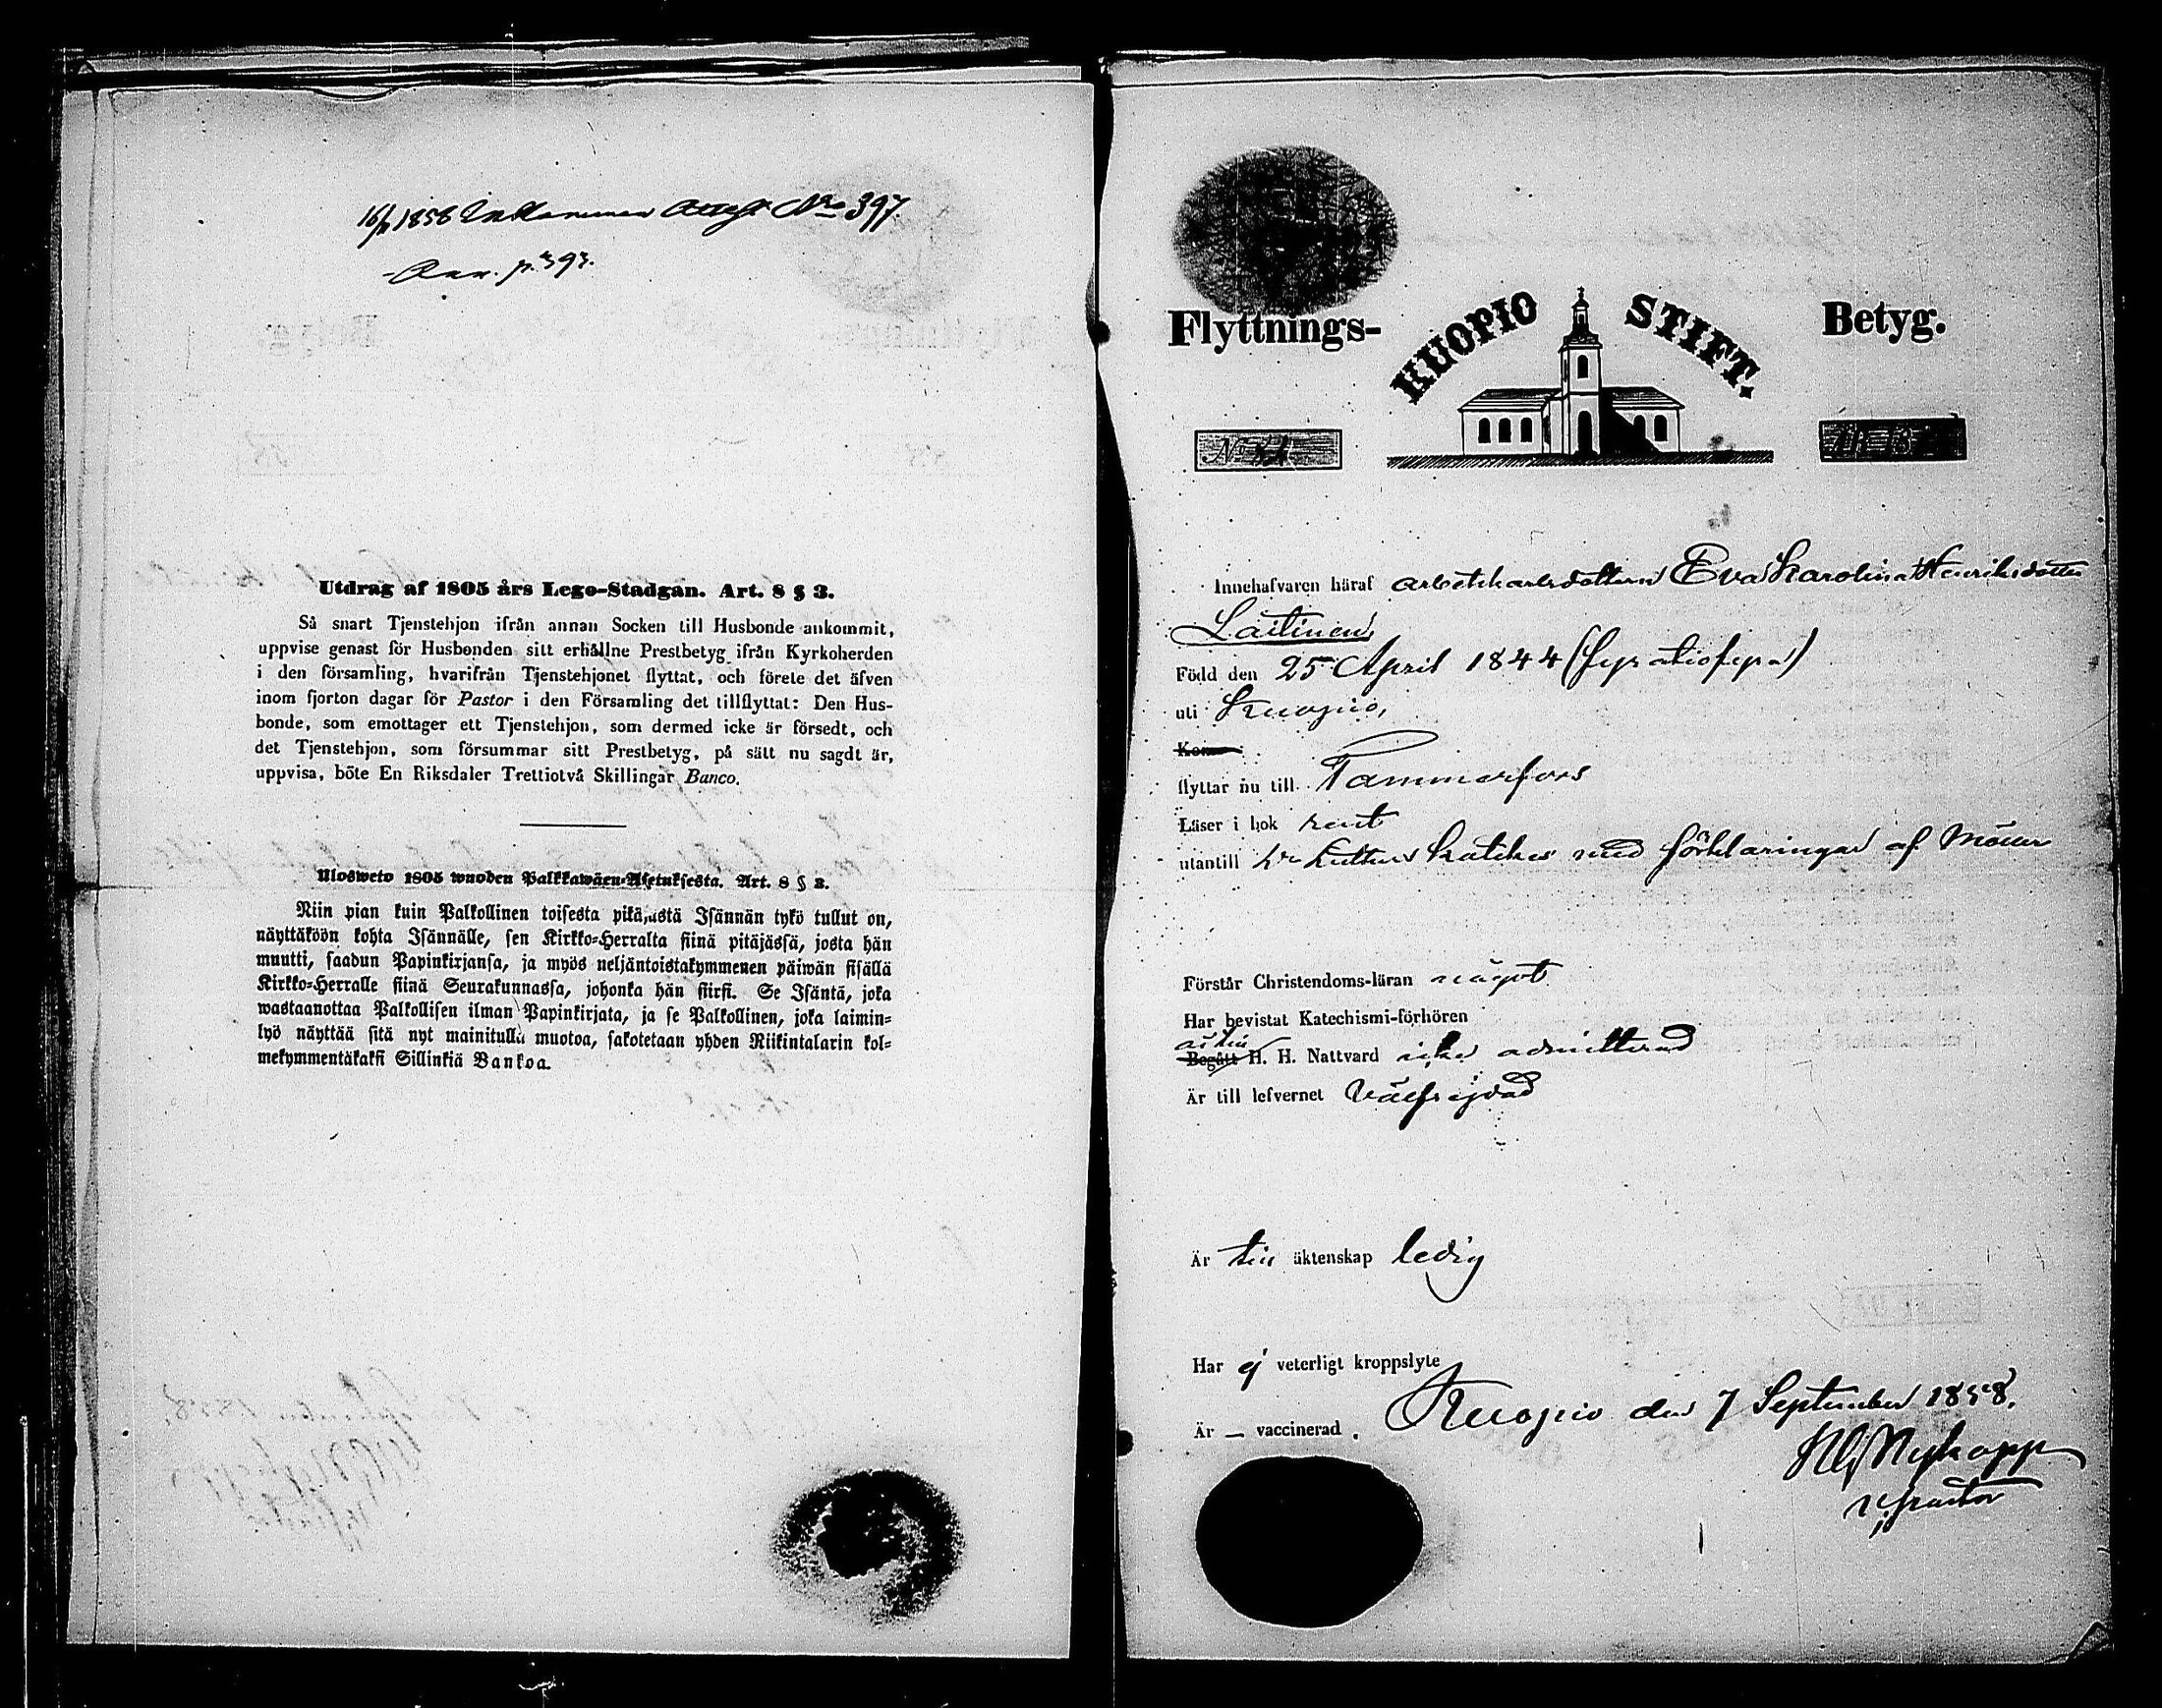 1858 Inkommen Attest Nro 397.
p. 393.
Utdrag af 1805 års Lego-Stadgan. Art. 8 § 3.
Så snart Tjenstehjon ifrån annan Socken till Husbonde ankommit,
uppvise genast för Husbonden sitt erhållne Prestbetyg ifrån Kyrkoherden
i den församling, hvarifrån Tjenstehjonet flyttat, och förete det äfven
inom fjorton dagar för Pastor i den Församling det tillflyttat: Den Hus-
bonde, som emottager ett Tjenstehjon, som dermed icke är försedt, och
det Tjenstehjon, som försummar sitt Prestbetyg, på sätt nu sagdt är,
uppvisa, böte En Riksdaler Trettiotvå Skillingar Banco.
Ulosweto 1805 wuoden Palkkawäen-Asetuksesta. Art. 8 § 3.
Niin pian kuin Palkollinen toisesta pitäjästä Isännän tykö tullut on,
näyttäköön kohta Isännälle, sen Kirkko-Herralta siinä pitäjässä, josta hän
muutti, saadun Papinkirjansa, ja myös neljäntoistakymmenen päiwän sisällä
Kirkko-Herralle siinä Seurakunnassa, johonka hän siirsi. Se Isäntä, joka
wastaanottaa Palkollisen ilman Papinkirjata, ja se Palkollinen, joka laimin-
lyö näyttää sitä nyt mainitulla muotoa, sakotetaan yhden Riikintalarin kol-
mekymmentäkaksi Sillinkiä Bankoa.
Flyttnings- KUOPIO STIFT. Betyg.
No
Innehafvaren häraf arbetskarlsdottren Eva Karolina Henriksdotter
Laitinen,
Född den 25 April 1844 (fyratiofyra)
uti Kuopio,
Kom
flyttar nu till Tammerfors
Läser i bok rent
utantill Dr Luthers Katekes med förklaringar af Möller
Förstår Christendoms-läran något
Har bevistat Katechismi-förhören
är till
Begått H. H. Nattvard icke admitterad
Är till lefvernet välfrejdad
Är till äktenskap ledig
Har ej veterligt kroppslyte
Är — vaccinerad. Kuopio den 7 September 1858.
Nykopp
v. pastor